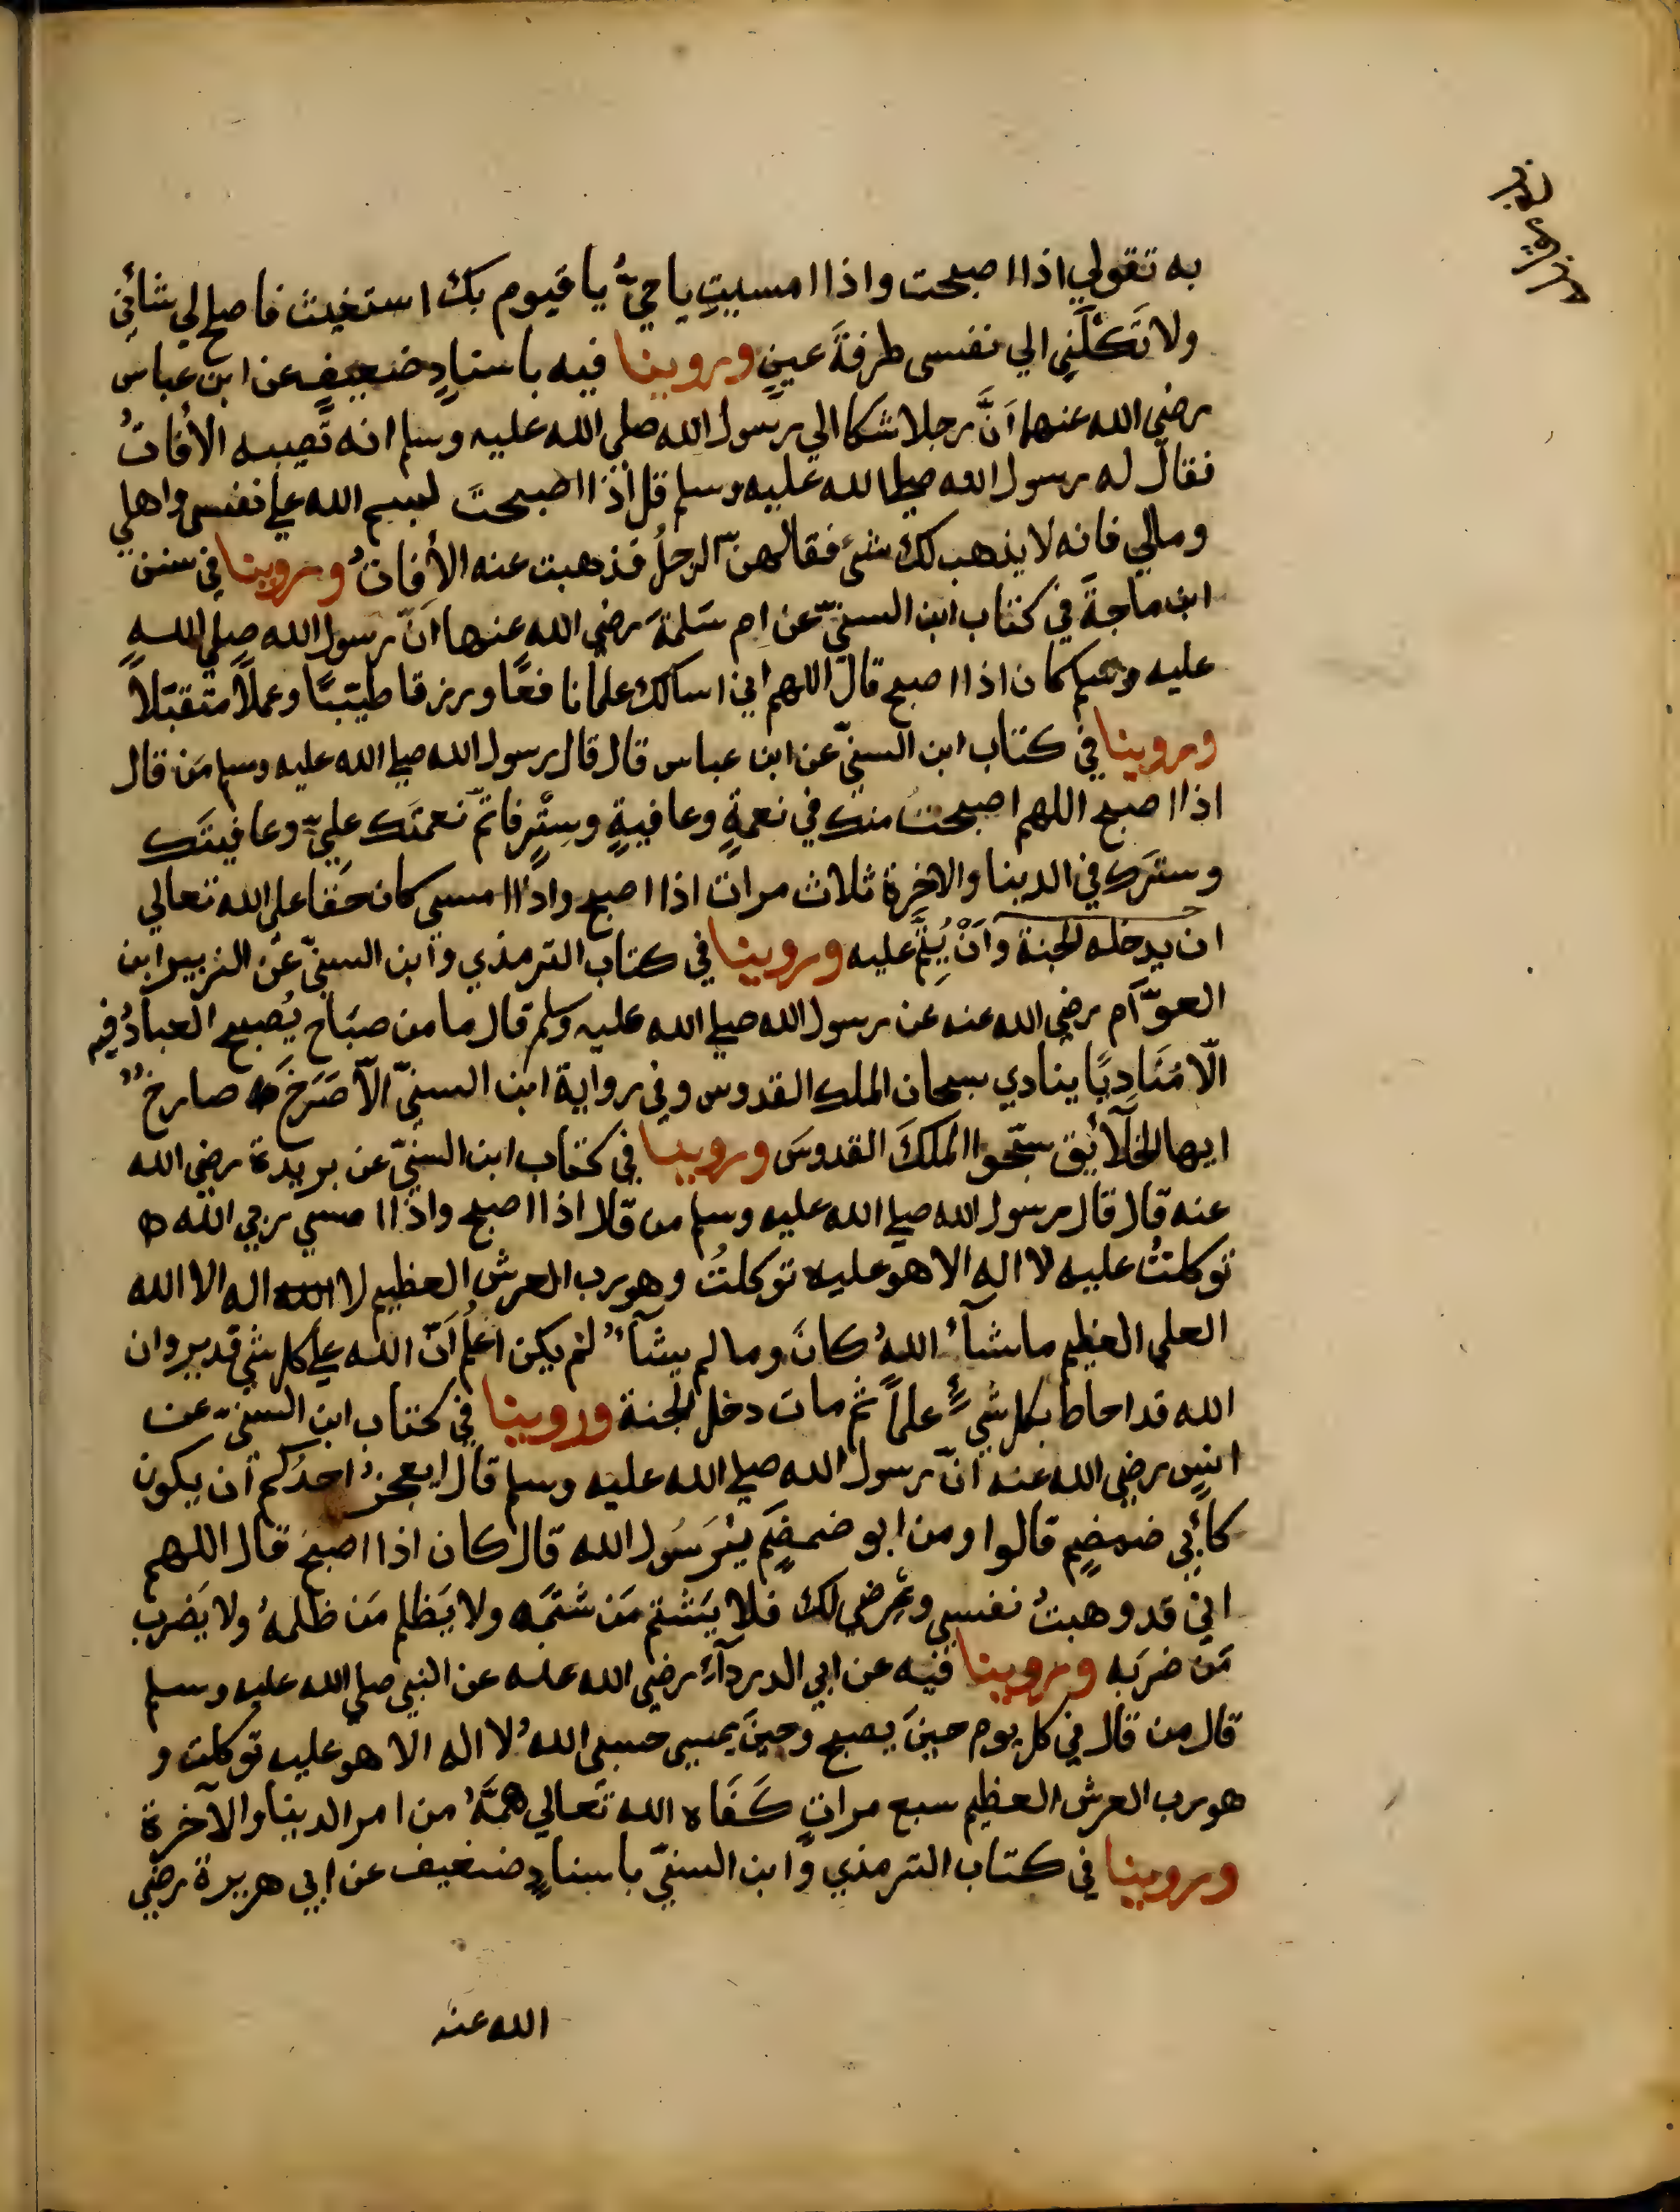 به تقولي اذا اصبحت واذا امسيتِ يا حيُّ يا قيوم بك استغيث فاصلح لي شائني
ولا تَكلْني الي نفسى طرفةَ عينٍ وروينا فيه باسنادٍ ضعيفٍ عن ابن عباس
رضي الله عنهما اَنَّ رجلا شكا الي رسول الله صلى الله عليه وسلم انه تُصيبه الأفاتُ
فقال له رسول الله صلي الله عليه وسلم قل اذا اصبحتَ لبسم الله علي نفسى واهلي
ومالي فانه لا يذهب لك شئ فقالهنّ الرجلُ فذهبت عنه الأفاتُ وروينا في سنن
ابن ماجةَ في كتاب ابن السنيّ عن ام سَلمةَ رضي الله عنها انّ رسول الله صلي الله
عليه وسلم كان اذا اصبح قال اللهم اني اسالك علما نا فعًا ورزقا طيّبًا وعملًا متقبّلاً
وروينا في كتاب ابن السنيّ عن ابن عباس قال قال رسول الله صلي الله عليه وسلم مَن قال
اذا اصبح اللهم اصبحتُ منك في نعمةٍ وعافيةٍ وسِتْرٍ فاتمّ نعمتَك عليّ وعافيتَك
وسترَك في الدينا والاخرة ثلاث مرات اذا اصبح واذا امسى كان حَقا على الله تعالي
ان يدخله الجنة وَاَنْ يُتِمَّ عليه وروينا في كتاب الترمذي وابن السنيّ عن الزبير ابن
العوّآم رضي الله عنه عن رسول الله صلي الله عليه وسلم قال ما من صبَاحٍ يُصبح العبادُ فيه
الّا مُنَادِيًا ينادي سبحان الملك القدوس وفي رواية ابن السنيّ الّا صَرَخَ صارخٌ
ايها الخلآئق سبّحوا الملكَ القدوسَ وروينا في كتاب ابن السنيّ عن بريدة رضي الله
عنه قال قال رسول الله صلي الله عليه وسلم من قال اذا اصبح واذا امسي ربي الله
توكلتُ عليه لا اله الا هو عليه توكلتُ وهو رب العرش العظيم لا الله اله الا الله
العلي العظيم ما شآءَ اللهُ كانَ وما لم يشآءْ لم يكن اعلمُ اَنّ الله علي كل شي قدير وان
الله قد احاط بكل شيءٍ علمًا ثم مات دخل الجنة وروينا في كتاب ابن السنيّ عن
انسٍ رضي الله عنه انّ رسول الله صلي الله عليه وسلم قال ايعجزُ احدُكم ان يكون
كأبي ضمضمٍ قالوا ومن ابو ضمضمٍ يٰرَسُول الله قال كان اذا اصبح قال اللهم
اني قد وهبتُ نفسي وعِرْضي لك فلا يَشتم مَن شتَمَه ولا يَظلم مَن ظلمهُ ولا يَضرب
مَن ضرَبه وروينا فيه عن ابي الدردآءِ رضي الله عنه عن النبي صلي الله عليه وسلم
قال من قال في كل يوم حينَ يصبح وحينَ يمسى حسبى اللهُ لا اله الا هو عليه توكلت و
هو رب العرش العظيم سبع مراتٍ كَفَاه الله تعالي همَّهُ من امر الدينا والآخرة
وروينا في كتاب الترمذي وابن السنيّ باسنادٍ ضعيف عن ابي هريرة رضي
الله عنه